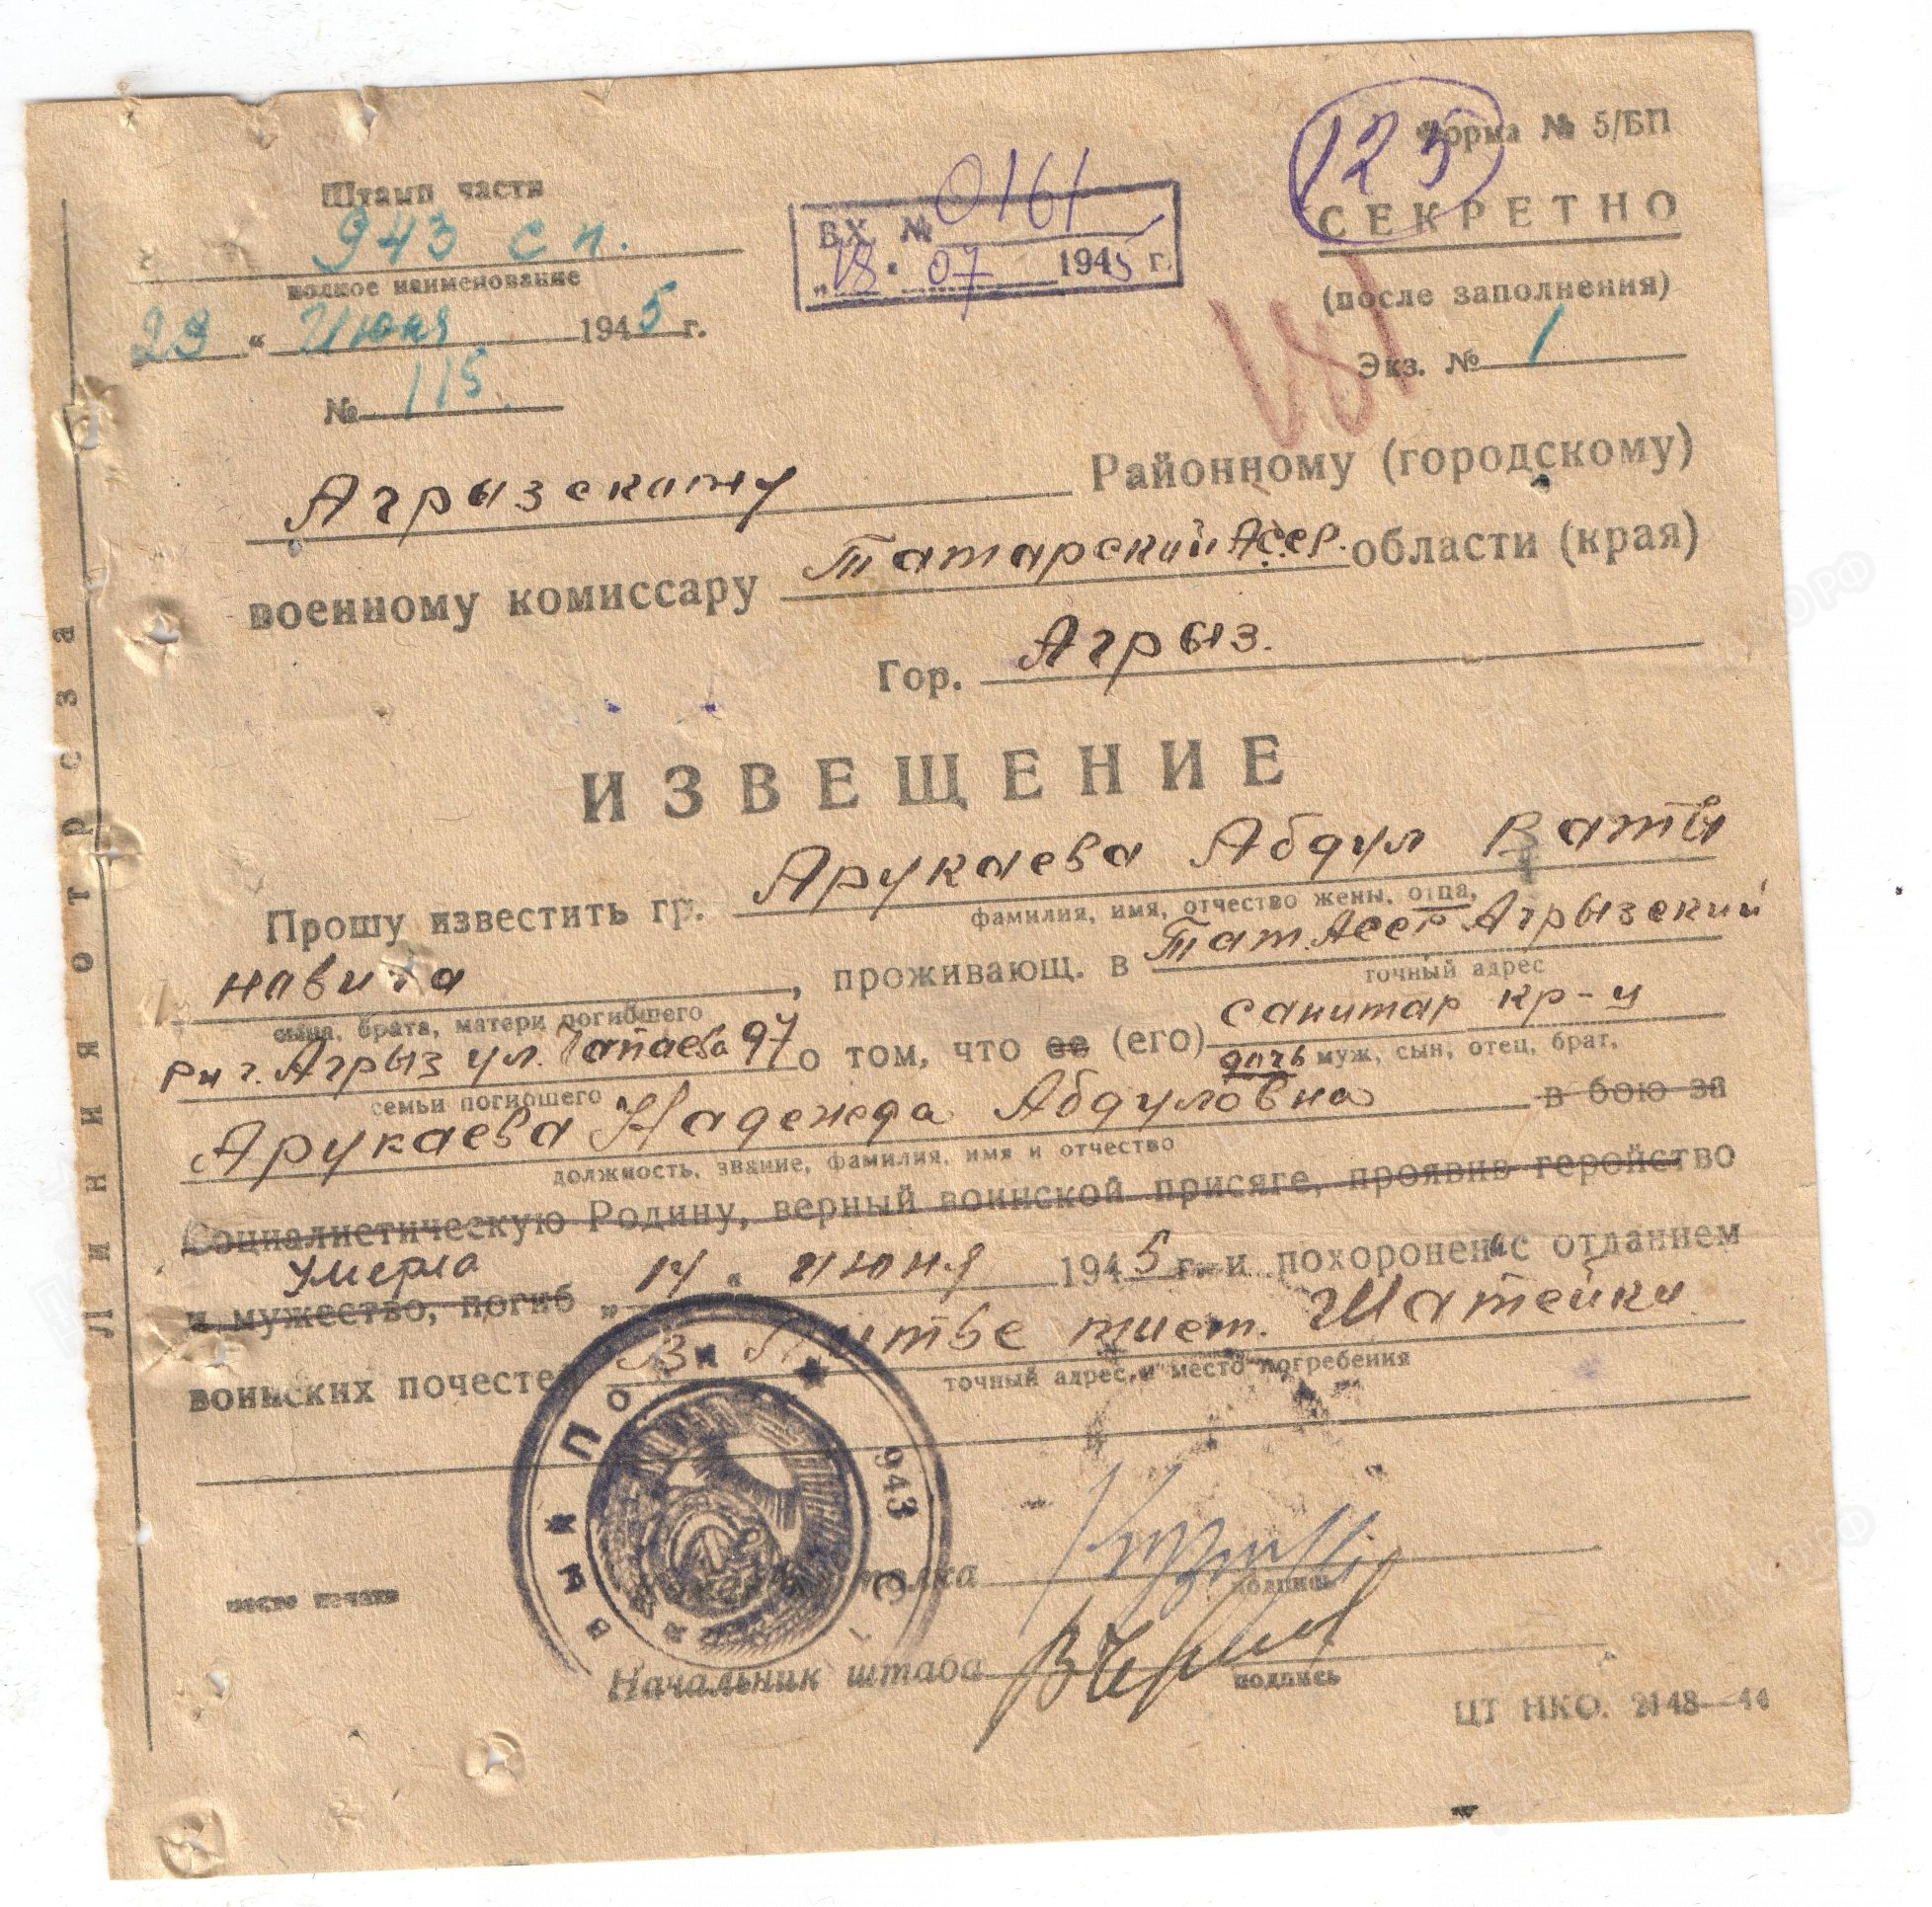 Форма № 5/БП
125
Штамп части
943 с п.
полное наименование
ВХ. № 0161
„18“ 07 1945 г.
СЕКРЕТНО
(после заполнения)
29 „ Июня 1945 г.
Экз. № 1
№ 115.
181
Агрызскому Районному (городскому)
военному комиссару Татарский Асср. области (края)
Гор. Агрыз.
ИЗВЕЩЕНИЕ
Прошу известить гр. Арукаева Абдул Ваты
фамилия, имя, отчество жены, отца,
навича, проживающ. в Тат. Асср Агрызский
точный адрес
сына, брата, матери погибшего
р-н г. Агрыз ул. Чапаева 97 о том, что ее (его) санитар кр-ц
дочь муж, сын, отец, брат,
семьи погибшего
Арукаева Надежда Абдуловна в бою за
должность, звание, фамилия, имя и отчество
Социалистическую Родину, верный воинской присяге, проявив геройство
умерла
и мужество, погиб „14“ июня 1945 г. и похоронена с отданием
воинских почестей В. Литве мест. Шатейки
точный адрес и место погребения
943
место печати
полка
подпись
Начальник штаба
подпись
ЦТ НКО. 2148—44
Линия отреза